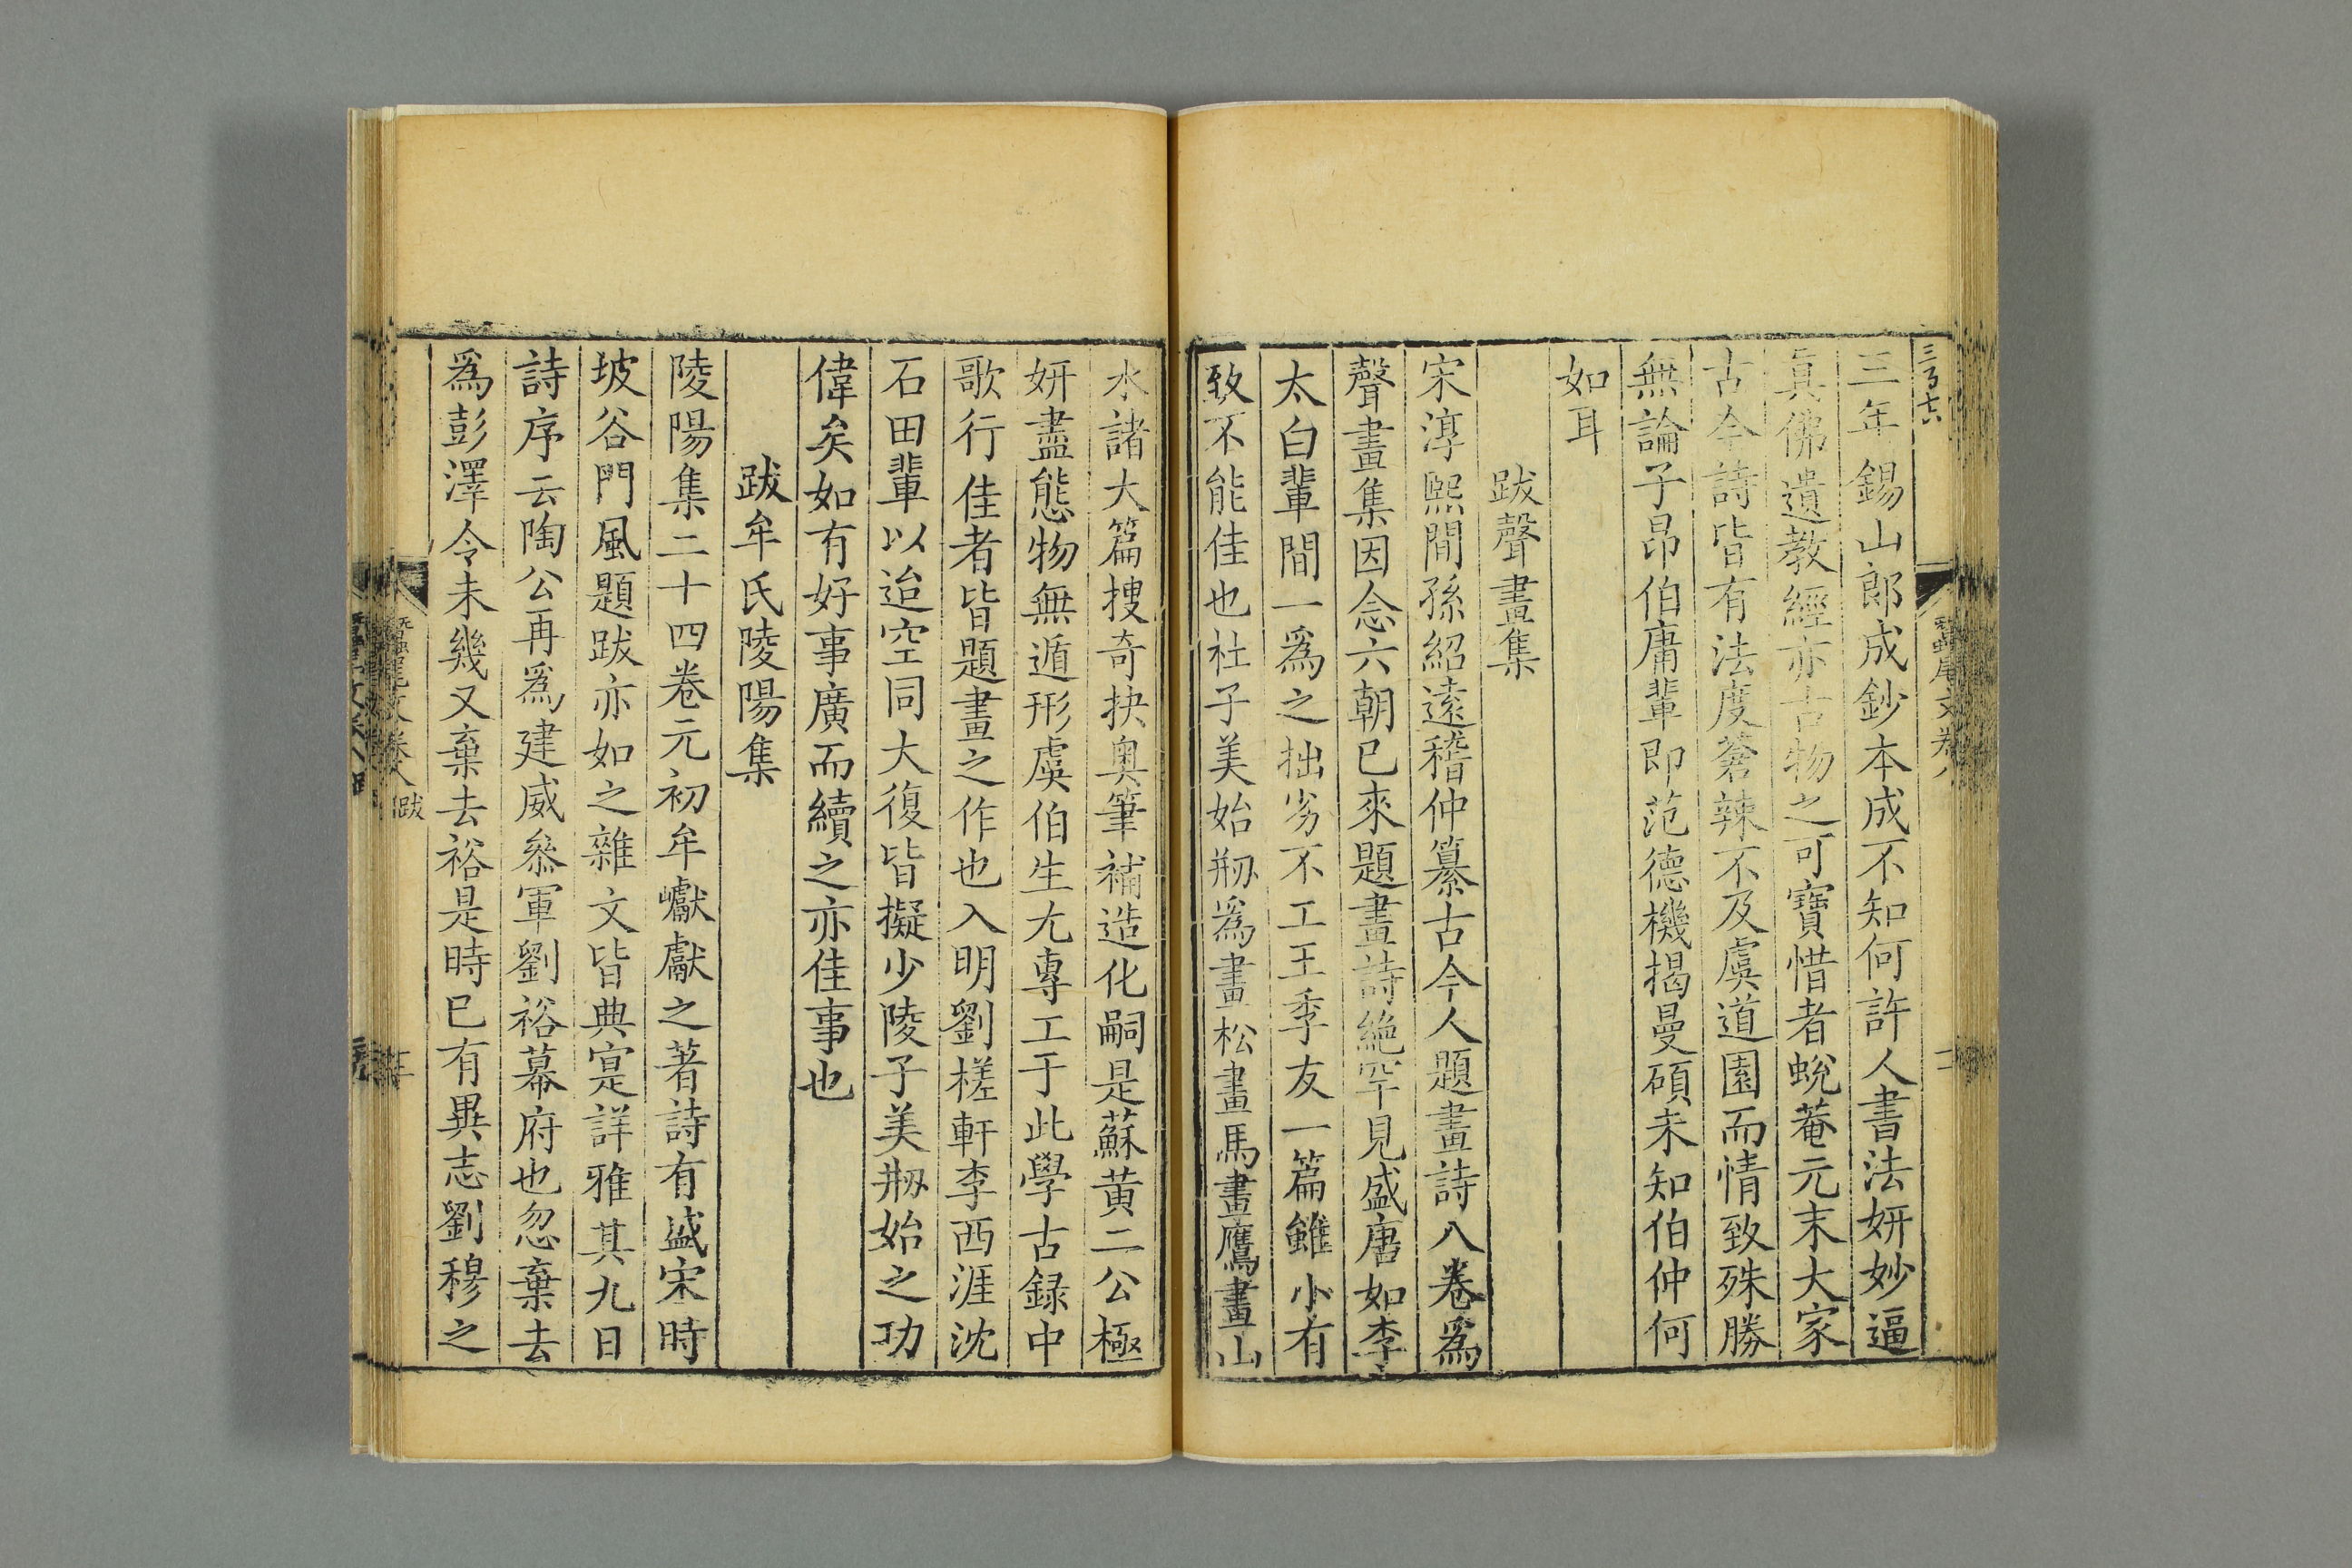 三年錫山郎成鈔本成不知何許人書法妍妙逼
真佛遺教經亦古物之可寶惜者蛻菴元末大家
古今詩皆有法度蒼辣不及虞道園而情致殊勝
無論子昂伯庸輩即范德機揭曼碩未知伯仲何
如耳
跋聲畫集
宋淳熙間孫紹遠稽仲纂古今人題畫詩八卷爲
聲畫集因念六朝已來題畫詩絶罕見盛唐如李
太白輩間一爲之拙劣不工王季友一篇雖小有
致不能佳也杜子美始剏爲畫松畫馬畫鷹畫山
水諸大篇搜奇抉奥筆補造化嗣是蘇黄二公極
妍盡態物無遁形虞伯生尢專工于此學古録中
歌行佳者皆題畫之作也入明劉槎軒李西涯沈
石田輩以迨空同大復皆擬少陵子美剏始之功
偉矣如有好事廣而續之亦佳事也
跋牟氏陵陽集
陵陽集二十四卷元初牟巘獻之著詩有盛宋時
坡谷門風題跋亦如之雜文皆典寔詳雅其九日
詩序云陶公再爲建威叅軍劉裕幕府也忽棄去
爲彭澤令未幾又棄去裕是時已有異志劉穆之
蠶尾文卷八 跋